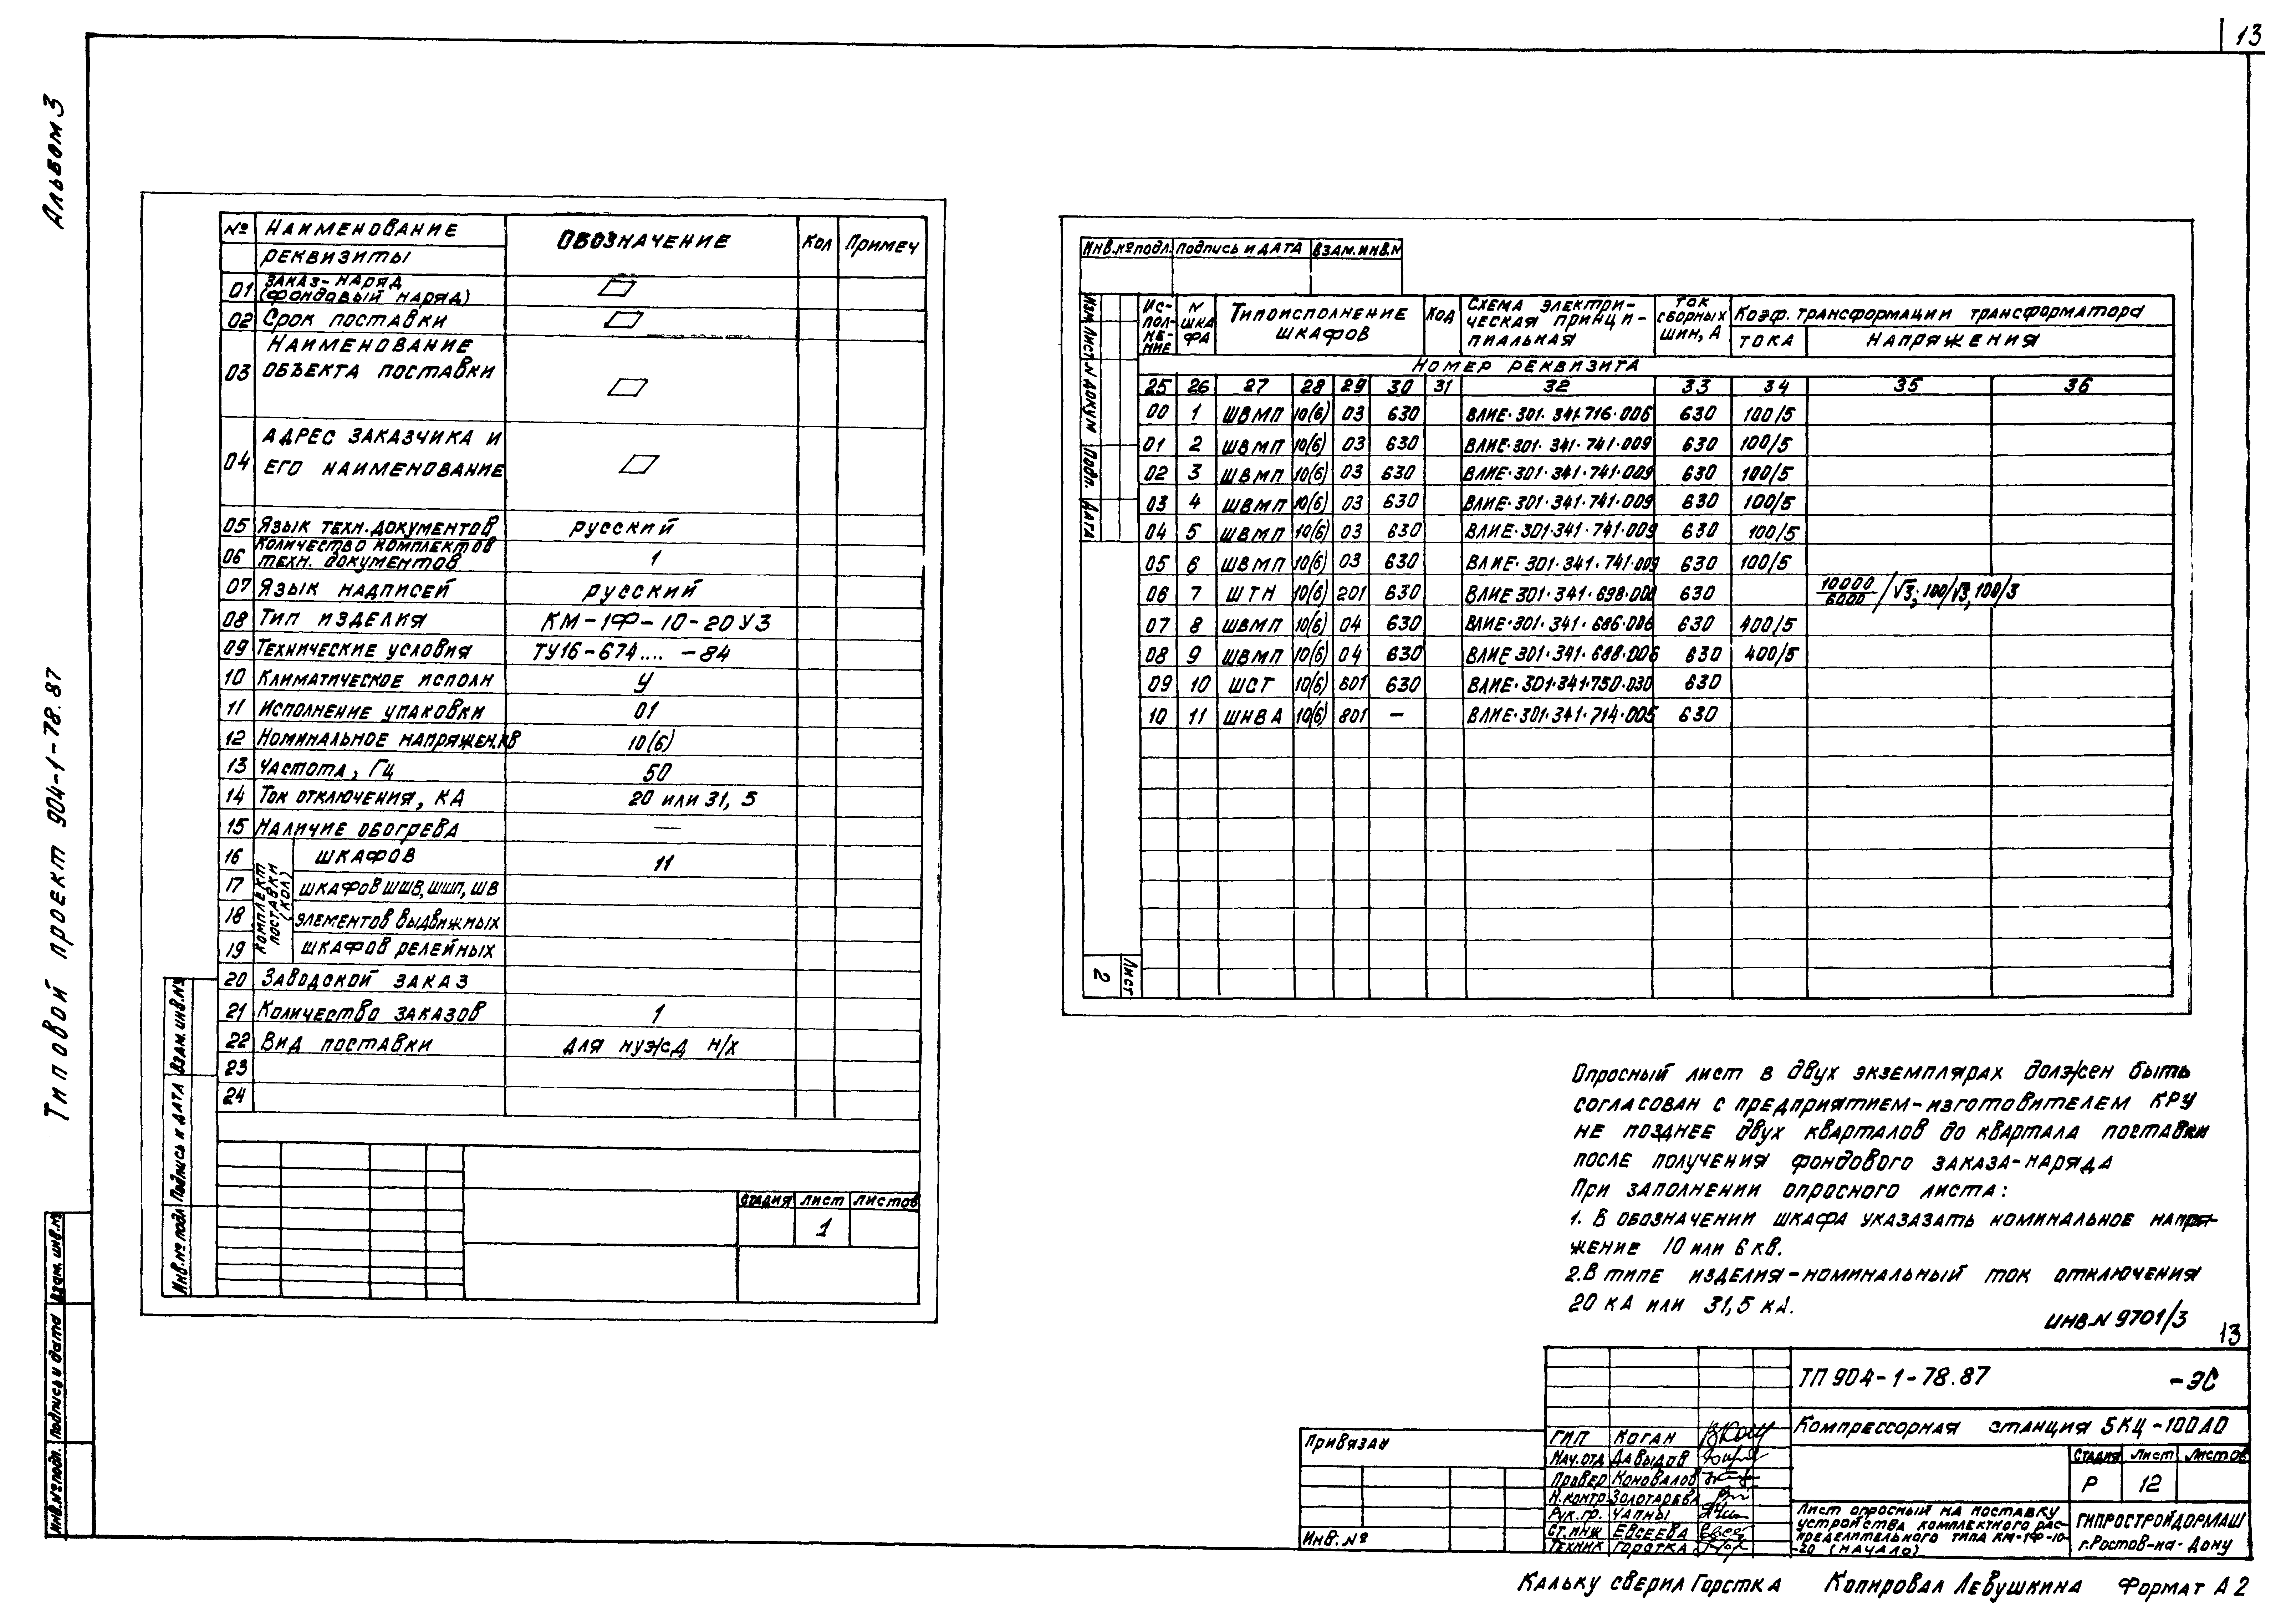 13
Альбом 3
Типовой проект 904-1-78.87
№ Наименование Обозначение Кол Примеч
реквизиты
01 Заказ-наряд (фондовый наряд)
02 Срок поставки
03 Наименование объекта поставки
04 Адрес заказчика и его наименование
05 Язык техн. документов русский
06 Количество комплектов техн. документов 1
07 Язык надписей русский
08 Тип изделия КМ-1Ф-10-20У3
09 Технические условия ТУ16-674.... -84
10 Климатическое исполн У
11 Исполнение упаковки 01
12 Номинальное напряжен.кВ 10(6)
13 Частота, Гц 50
14 Ток отключения, кА 20 или 31,5
15 Наличие обогрева —
Комплект поставки (кол)
16 шкафов 11
17 шкафов ШШВ, ШШП, ШВ
18 элементов выдвижных
19 шкафов релейных
20 Заводской заказ
21 Количество заказов 1
22 Вид поставки для нужд н/х
23
24
Стадия Лист Листов
1
Инв.№ подл Подпись и дата Взам.инв.№
Инв.№ подл. Подпись и дата Взам.инв.N
Изм Лист N докум Подп. Дата
2 Лист
Исполнение N шкафа Типоисполнение шкафов Код Схема электрическая принципиальная Ток сборных шин, А Коэф. трансформации трансформатора
тока напряжения
Номер реквизита
25 26 27 28 29 30 31 32 33 34 35 36
00 1 ШВМП 10(6) 03 630 ВЛИЕ.301.341.716.006 630 100/5
01 2 ШВМП 10(6) 03 630 ВЛИЕ.301.341.741.009 630 100/5
02 3 ШВМП 10(6) 03 630 ВЛИЕ.301.341.741.009 630 100/5
03 4 ШВМП 10(6) 03 630 ВЛИЕ.301.341.741.009 630 100/5
04 5 ШВМП 10(6) 03 630 ВЛИЕ.301.341.741.009 630 100/5
05 6 ШВМП 10(6) 03 630 ВЛИЕ.301.341.741.009 630 100/5
06 7 ШТН 10(6) 201 630 ВЛИЕ 301.341.698.000 630 10000/6000/√3; 100/√3, 100/3
07 8 ШВМП 10(6) 04 630 ВЛИЕ.301.341.686.006 630 400/5
08 9 ШВМП 10(6) 04 630 ВЛИЕ 301.341.688.006 630 400/5
09 10 ШСТ 10(6) 601 630 ВЛИЕ.301.341.750.030 630
10 11 ШНВА 10(6) 801 — ВЛИЕ.301.341.714.005 630
Опросный лист в двух экземплярах должен быть
согласован с предприятием-изготовителем КРУ
не позднее двух кварталов до квартала поставки
после получения фондового заказа-наряда
При заполнении опросного листа:
1. В обозначении шкафа указазать номинальное напря-
жение 10 или 6 кв.
2. В типе изделия-номинальный ток отключения
20 кА или 31,5 кА.
Инв.N 9701/3
13
ТП 904-1-78.87 -ЭС
Компрессорная станция 5КЦ-100А0
Стадия Лист Листов
Р 12
Лист опросный на поставку
устройства комплектного рас-
пределительного типа КМ-1Ф-10-
-20 (начало)
ГИПРОСТРОЙДОРМАШ
г.Ростов-на-Дону
Привязан
Инв.№
ГИП Коган
Нач.отд Давыдов
Провер Коновалов
Н.контр Золотарева
Рук.гр. Чапны
Ст.инж Евсеева
Техник Горстка
Инв.№ подл. Подпись и дата Взам.инв.№
Кальку сверил Горстка Копировал Левушкина Формат А2